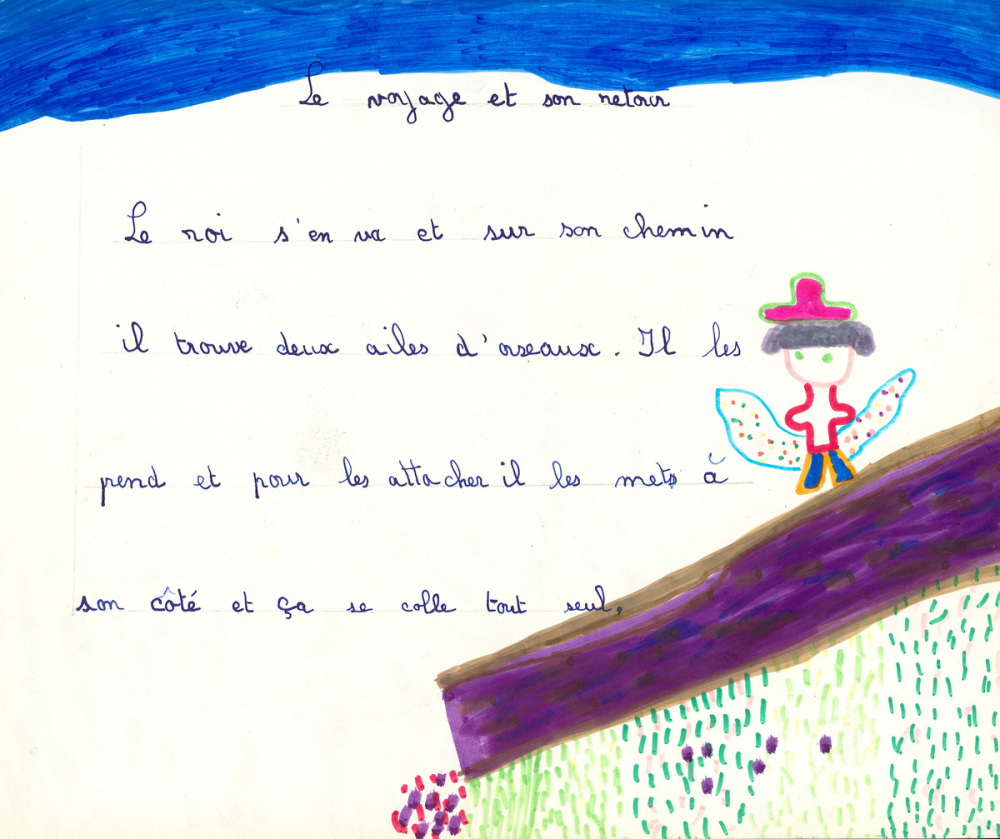 Le voyage et son retour
Le roi s'en va et sur son chemin
il trouve deux ailes d'oiseaux. Il les
pend et pour les attacher il les mets à
son côté et ça se colle tout seul,